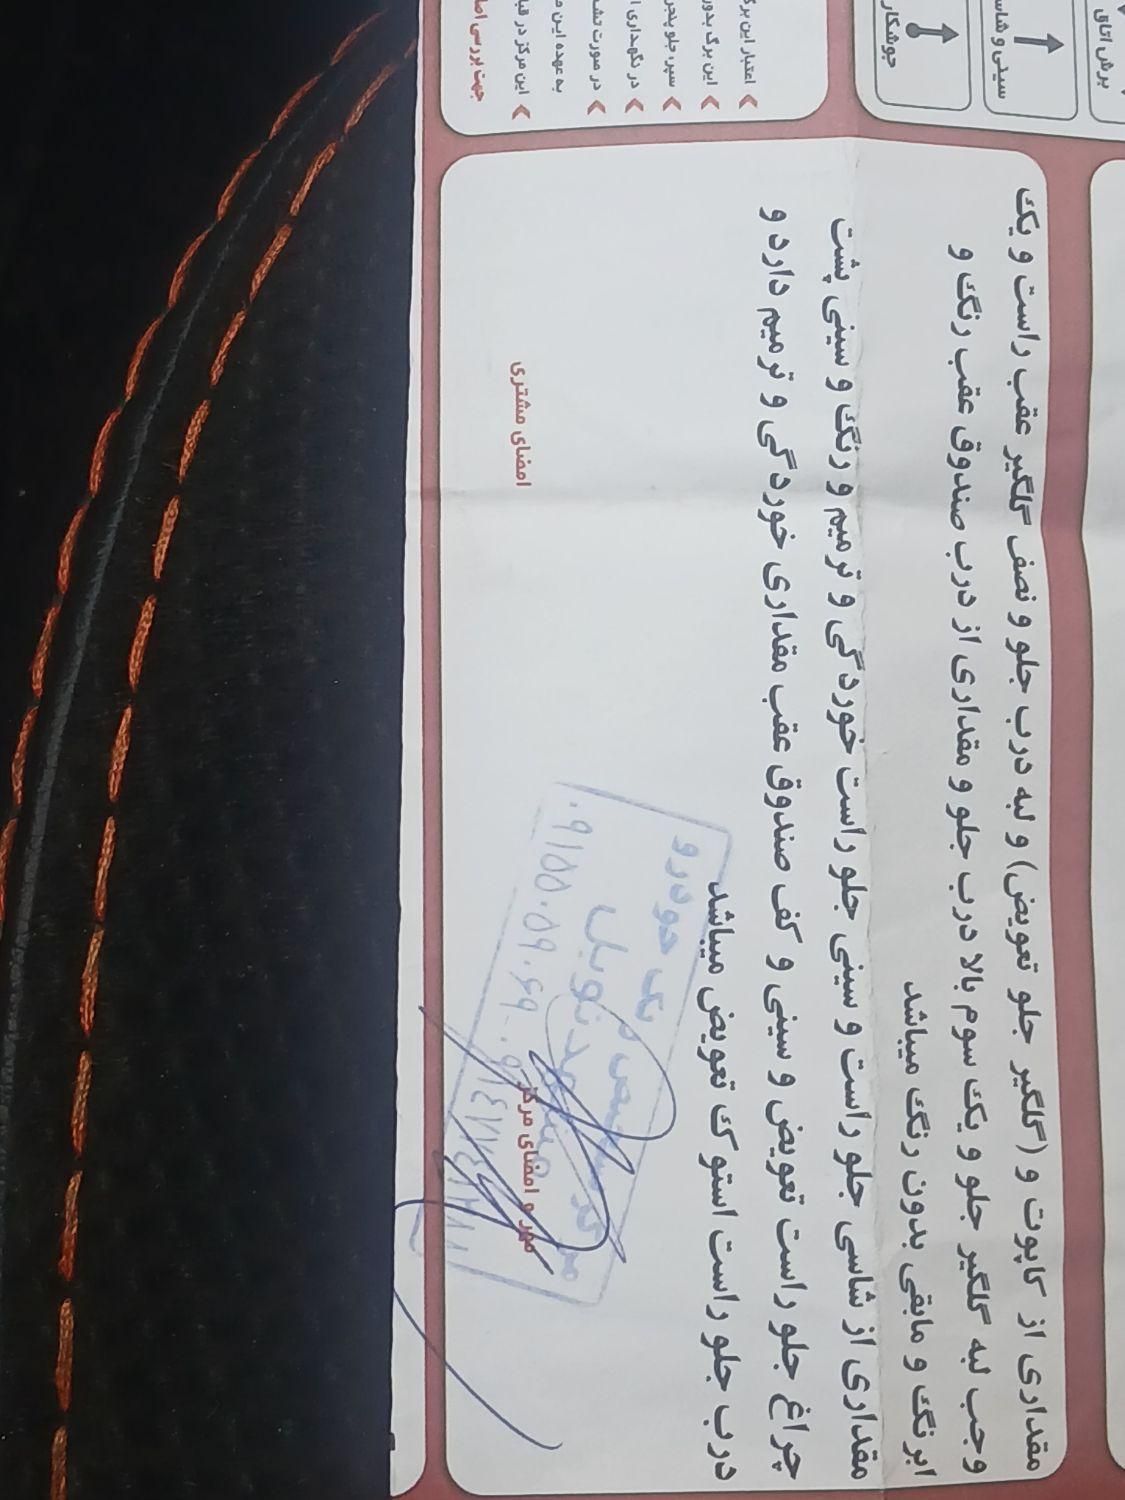 برش اتاق
سینی و شاسی
جوشکاری
اعتبار این برگ
این برگ بدون
سپر، جلو پنجره
در نگهداری
در صورت
به عهده این
این مرکز در
جهت بررسی
مقداری از کاپوت و (گلگیر جلو تعویض) و لبه درب جلو و نصف گلگیر عقب راست و یک
وجب لبه گلگیر جلو و یک سوم بالا درب جلو و مقداری از درب صندوق عقب رنگ و
ابرنگ و مابقی بدون رنگ میباشد
مقداری از شاسی جلو راست و سینی جلو راست خوردگی و ترمیم و رنگ و سینی پشت
چراغ جلو راست تعویض و سینی و کف صندوق عقب مقداری خوردگی و ترمیم دارد و
درب جلو راست استوک تعویض میباشد
تک خودرو
۰۹۱۵۵۰۵۹۰۶۹
امضای مشتری
مهر و امضای مرکز